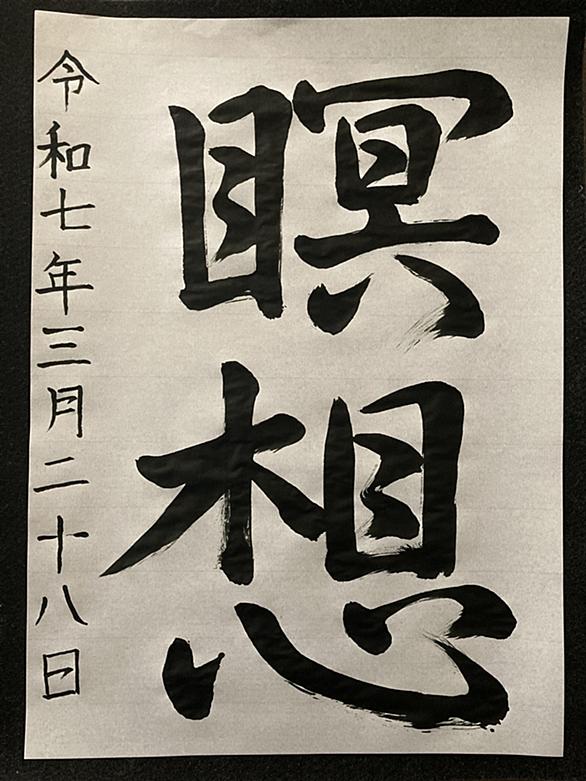 瞑想
令和七年三月二十八日